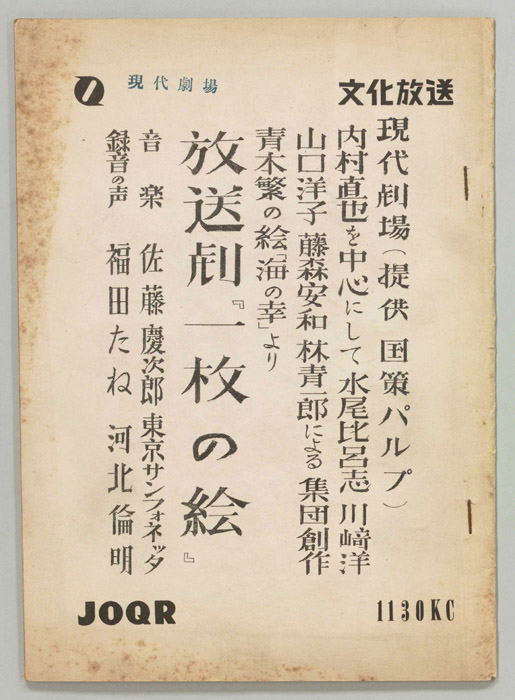 文化放送
現代劇場
現代劇場（提供 国策パルプ）
内村直也を中心にして 水尾比呂志 川﨑洋
山口洋子 藤森安和 林青一郎による 集団創作
青木繁の絵「海の幸」より
放送劇『一枚の絵』
音楽 佐藤慶次郎 東京サンフォネッタ
録音の声 福田たね 河北倫明
JOQR
1130KC